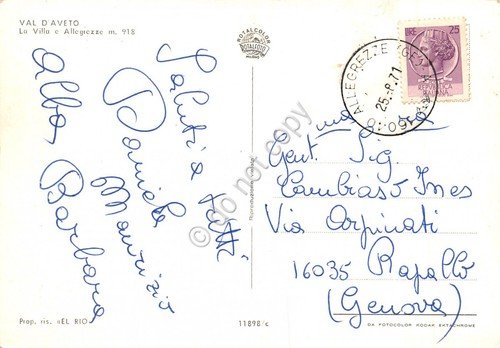 VAL D'AVETO
La Villa e Allegrezze m. 918
ROTALCOLOR
ROTALFOTO
MILANO
LIRE 25
REPUBBLICA
ITALIANA
ALLEGREZZE
25.-8.71
16010
Saluti a tutti
Daniela
Maurizio
Alba Barbara
Gent. Sig.
Cambiaso Ines
Via Arpinati
16035 Rapallo
(Genova)
do not copy
Prop. ris. «EL RIO
11898/c
DA FOTOCOLOR KODAK EKTACHROME